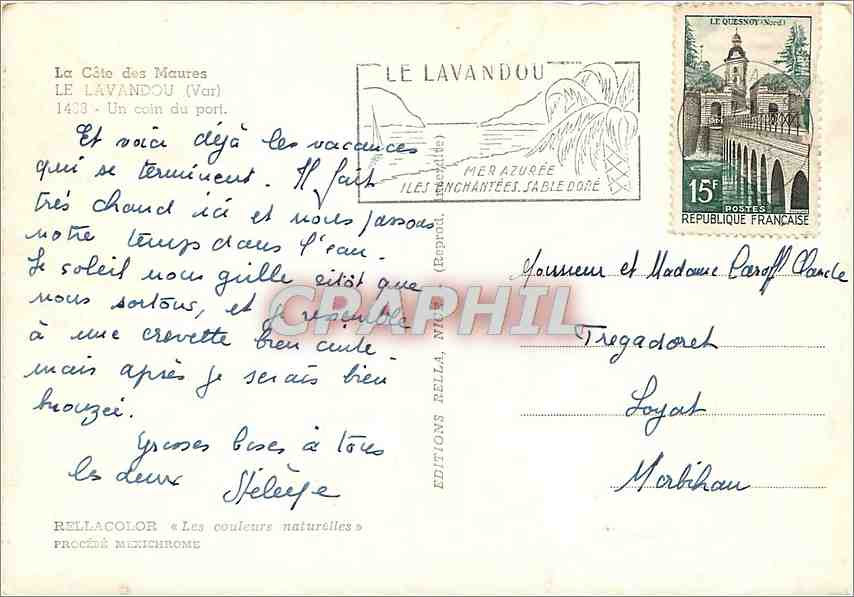 La Côte des Maures
LE LAVANDOU (Var)
1403 - Un coin du port.
LE LAVANDOU
MER AZURÉE
ILES ENCHANTÉES. SABLE DORÉ
LE QUESNOY (Nord)
15F
POSTES
REPUBLIQUE FRANÇAISE
Et voici déjà les vacances
qui se terminent. Il fait
très chaud ici et nous passons
notre temps dans l'eau.
Le soleil nous grille sitôt que
nous sortons, et je ressemble
à une crevette bien cuite
mais après je serais bien
bronzée.
Grosses bises à tous
les deux
EDITIONS RELLA, NICE (Reprod. interdite)
CPAPHIL
Monsieur et Madame Claude
Tregadoret
Loyat
Morbihan
RELLACOLOR « Les couleurs naturelles »
PROCÉDÉ MEXICHROME